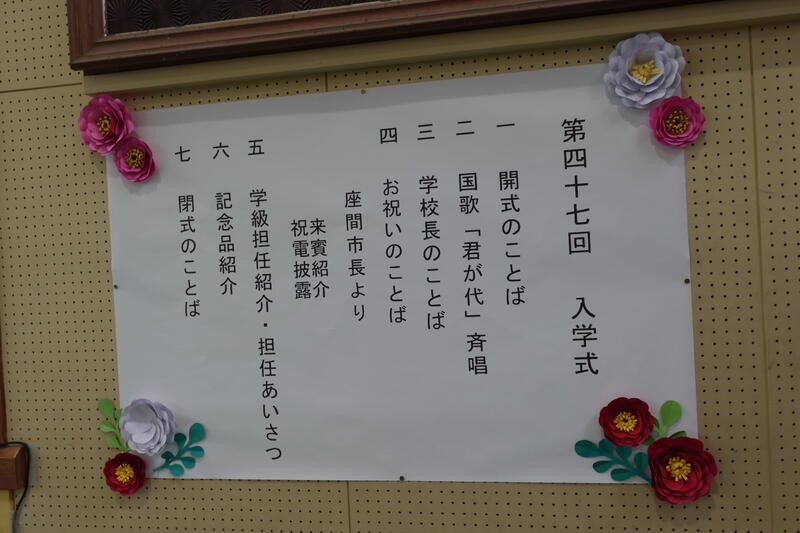 第四十七回 入学式
一 開式のことば
二 国歌「君が代」斉唱
三 学校長のことば
四 お祝いのことば
座間市長より
来賓紹介
祝電披露
五 学級担任紹介・担任あいさつ
六 記念品紹介
七 閉式のことば